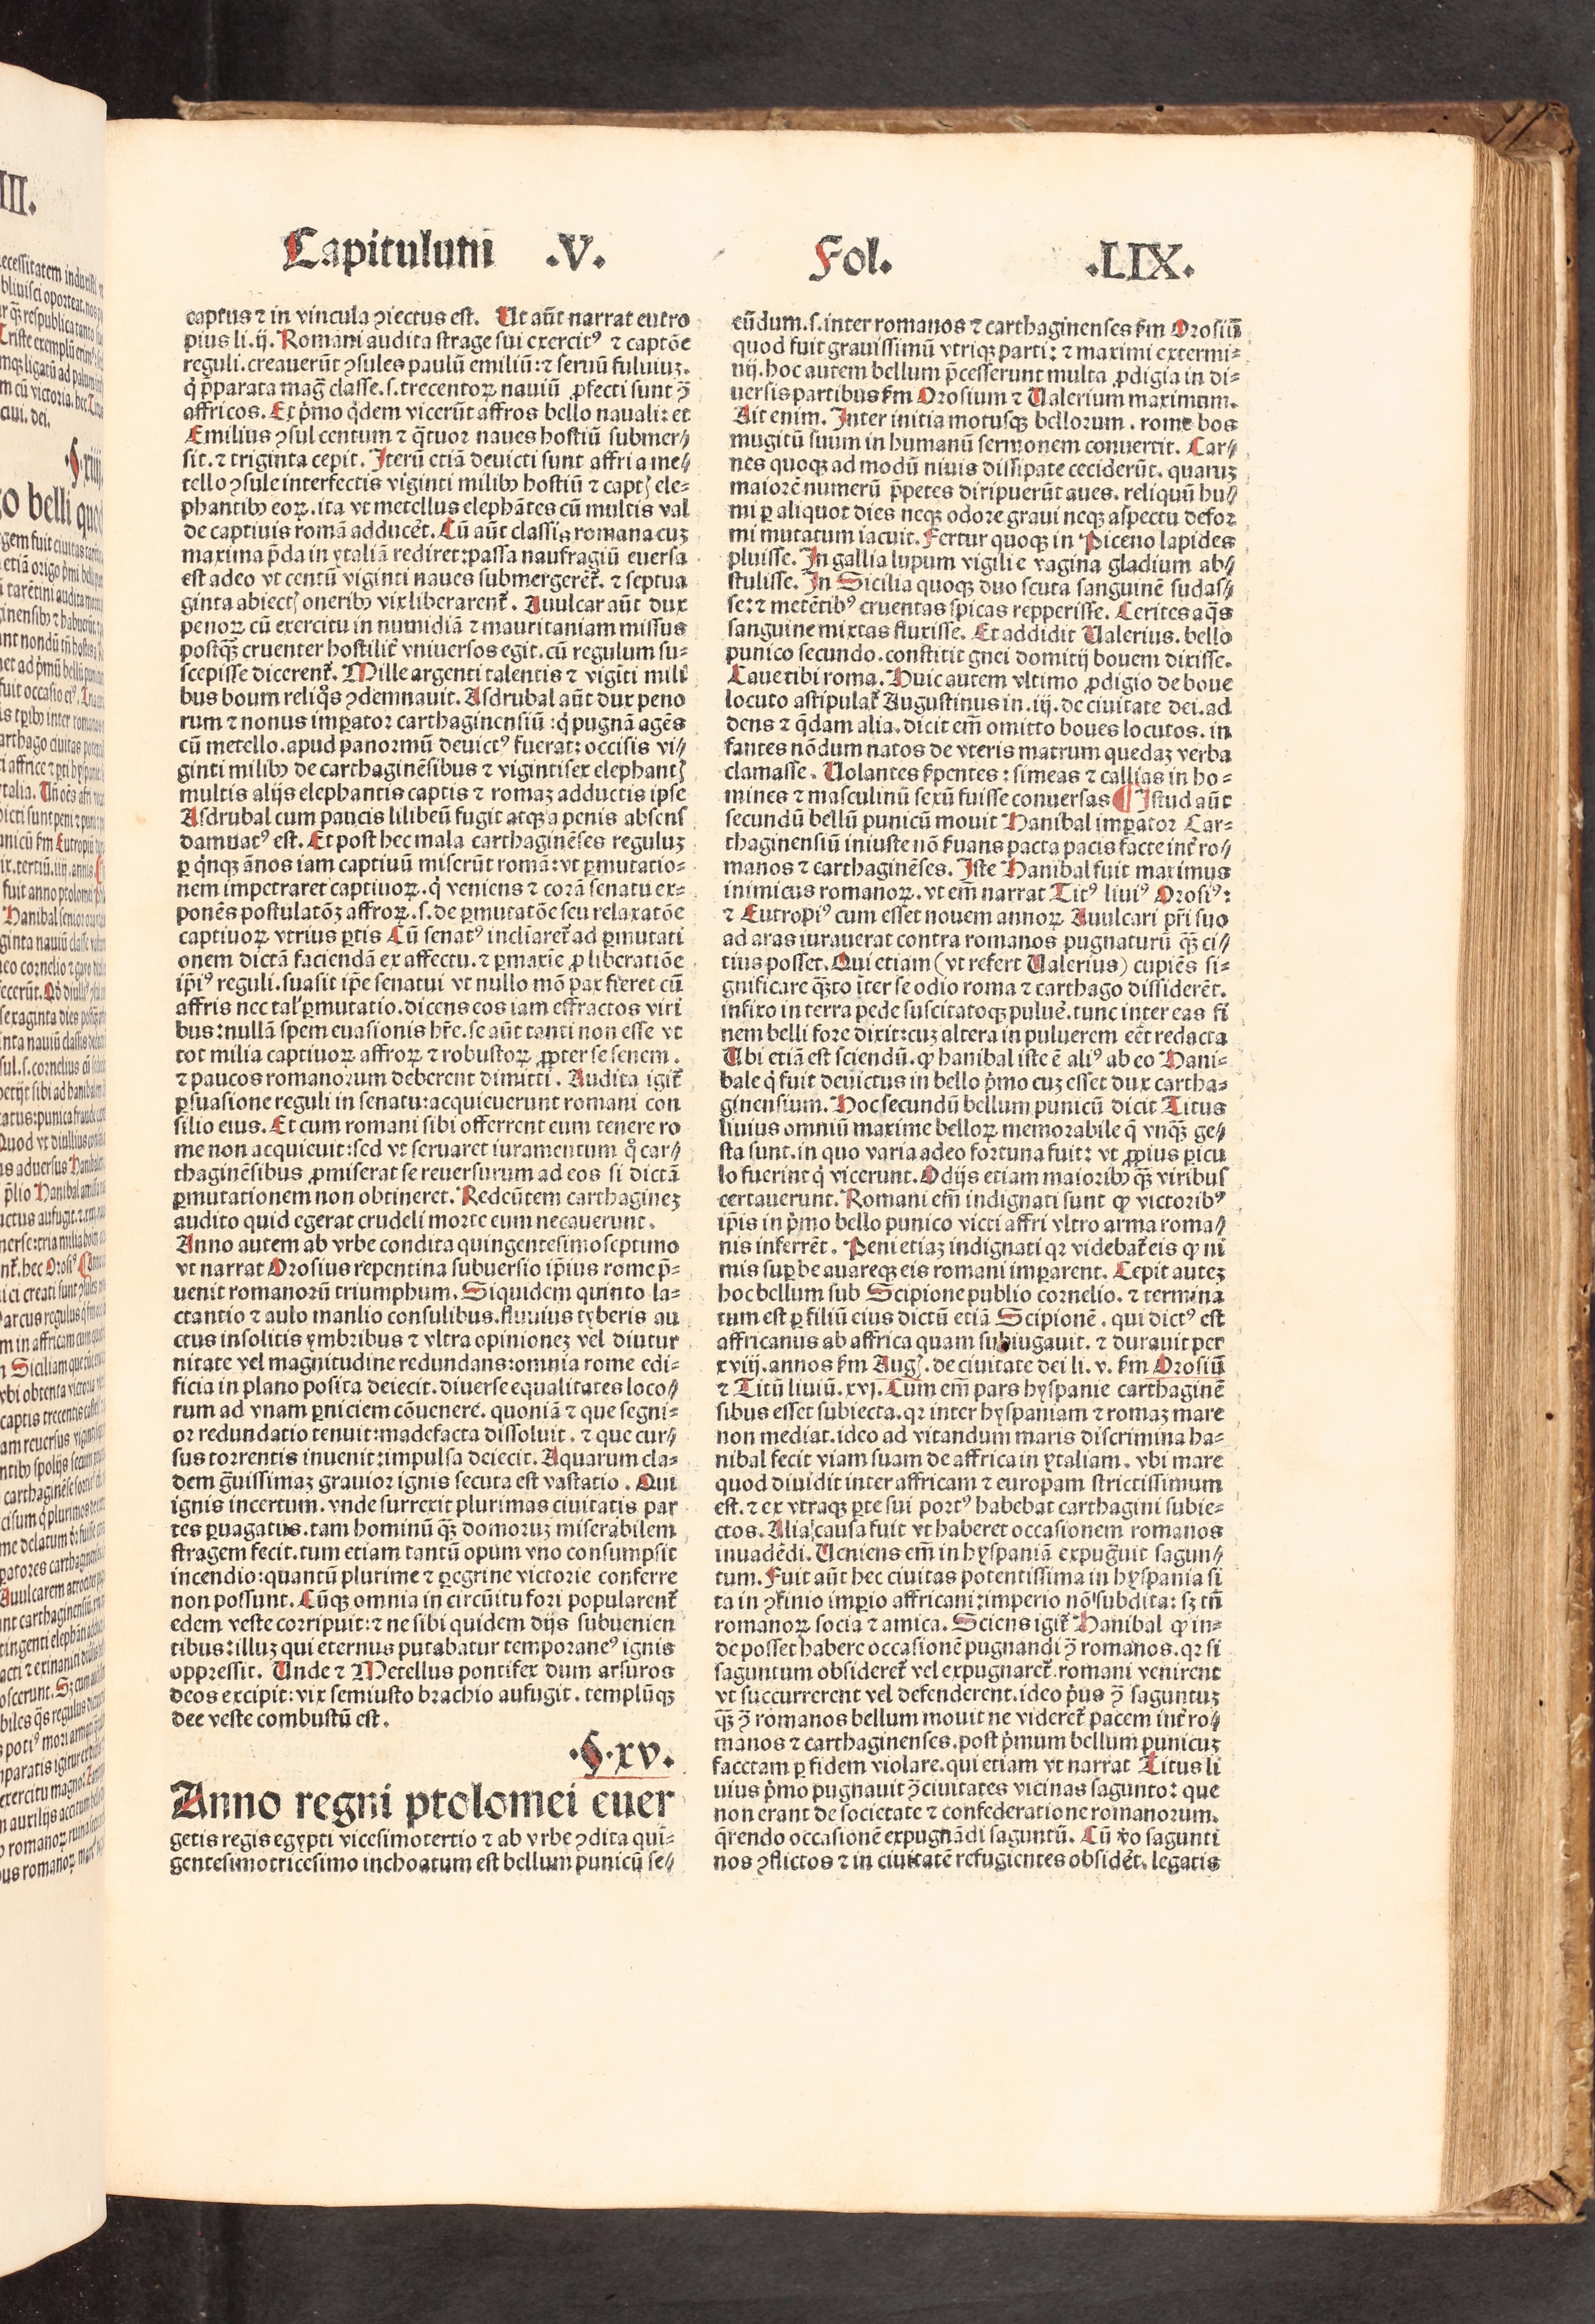 Capitulum .V. Fol. .LIX.
captus ⁊ in vincula ꝯiectus est. Ut aūt narrat eutro
pius li.ij. Romani audita strage sui exercitꝰ ⁊ captōe
reguli.creauerūt ꝯsules paulū emiliū:⁊ seruū fuluiuꝫ.
q̇ p̄parata maḡ classe.s.trecentoꝝ nauiū ꝓfecti sunt ꝯ̄
affricos. Et p̄mo q̇dem vicerūt affros bello nauali: et
Emilius ꝯsul centum ⁊ q̄tuor naues hostiū submer⸗
sit.⁊ triginta cepit. Iterū etiā deuicti sunt affri a me⸗
tello ꝯsule interfectis viginti milibꝰ hostiū ⁊ captꝭ ele⸗
phantibꝰ eoꝝ.ita vt metellus elephātes cū multis val
de captiuis romā adducēt. Cū aūt classis romana cuꝫ
maxima p̄da in ytaliā rediret:passa naufragiū euersa
est adeo vt centū viginti naues submergerēt̄. ⁊ septua
ginta abiectꝭ oneribꝰ vix liberarent̄. Auulcar aūt dux
penoꝝ cū exercitu in numidiā ⁊ mauritaniam missus
postq̄ꝫ cruenter hostilit̄ vniuersos egit.cū regulum su⸗
scepisse dicerent̄. Mille argenti talentis ⁊ vigīti mili
bus boum reliq̇s ꝯdēmnauit. Asdrubal aūt dux peno
rum ⁊ nonus imꝑator carthaginensiū:q̇ pugnā agēs
cū metello.apud panormū deuictꝰ fuerat: occisis vi⸗
ginti milibꝰ de carthaginēsibus ⁊ vigintisex elephantꝭ
multis alijs elephantis captis ⁊ romaꝫ adductis ipse
Asdrubal cum paucis lilibeū fugit atqꝫ a penis absens
damnatꝰ est. Et post hec mala carthaginēses reguluꝫ
ꝑ q̇nqꝫ ānos iam captiuū miserūt romā: vt ꝑmutatio⸗
nem impetraret captiuoꝝ.q̇ veniens ⁊ corā senatu ex⸗
ponēs postulatōꝫ affroꝝ.s.de ꝑmutatōe seu relaxatōe
captiuoꝝ vtrius ꝑtis Cū senatꝰ inclīaret̄ ad ꝑmutati
onem dictā faciendā ex affectu.⁊ ꝑmaxīe ꝓ liberatiōe
ip̄iꝰ reguli.suasit ip̄e senatui vt nullo mō pax fieret cū
affris nec tal' ꝑmutatio.dicens eos iam effractos viri
bus:nullā spem euasionis hr̄e.se aūt tanti non esse vt
tot milia captiuoꝝ affroꝝ ⁊ robustoꝝ ꝓpter se senem.
⁊ paucos romanorum deberent dimitti. Audita igit̄
ꝑsuasione reguli in senatu:acquieuerunt romani con
silio eius. Et cum romani sibi offerrent eum tenere ro
me non acquieuit:sed vt seruaret iuramentum q̊ car⸗
thaginēsibus ꝓmiserat se reuersurum ad eos si dictā
ꝑmutationem non obtineret. Redeūtem carthagineꝫ
audito quid egerat crudeli morte eum necauerunt.
Anno autem ab vrbe condita quingentesimoseptimo
vt narrat Orosius repentina subuersio ip̄ius rome p̄⸗
uenit romanorū triumphum. Siquidem quinto la⸗
ctantio ⁊ aulo manlio consulibus.fluuius tyberis au
ctus insolitis ymbribus ⁊ vltra opinioneꝫ vel diutur
nitate vel magnitudine redundans:omnia rome edi⸗
ficia in plano posita deiecit.diuerse equalitates loco⸗
rum ad vnam ꝑniciem cōuenere. quoniā ⁊ que segni⸗
or redundatio tenuit:madefacta dissoluit. ⁊ que cur⸗
sus torrentis inuenit:impulsa deiecit. Aquarum cla⸗
dem g̃uissimaꝫ grauior ignis secuta est vastatio. Qui
ignis incertum.vnde surrexit plurimas ciuitatis par
tes ꝑuagatus.tam hominū q̄ꝫ domoruꝫ miserabilem
stragem fecit.tum etiam tantū opum vno consumpsit
incendio:quantū plurime ⁊ ꝑegrine victorie conferre
non possunt. Cūqꝫ omnia in circūitu fori popularent̄
edem veste corripuit:⁊ ne sibi quidem dijs subuenien
tibus:illuꝫ qui eternus putabatur temporaneꝰ ignis
oppressit. Unde ⁊ Metellus pontifex dum arsuros
deos excipit:vix semiusto brachio aufugit.templūqꝫ
dee veste combustū est.
.§.xv.
Anno regni ptolomei euer
getis regis egypti vicesimotertio ⁊ ab vrbe ꝯdita qui⸗
gentesimotricesimo inchoatum est bellum punicū se⸗
cūdum.s.inter romanos ⁊ carthaginenses ẜm Orosiū
quod fuit grauissimū vtriqꝫ parti: ⁊ maximi extermi⸗
nij.hoc autem bellum p̄cesserunt multa ꝓdigia in di⸗
uersis partibus ẜm Orosium ⁊ Ualerium maximum.
Ait enim. Inter initia motusqꝫ bellorum.rome bos
mugitū suum in humanū sermonem conuertit. Car⸗
nes quoqꝫ ad modū niuis dissipate ceciderūt.quaruꝫ
maiorē numerū p̄petes diripuerūt aues.reliquū hu⸗
mi ꝑ aliquot dies neqꝫ odore graui neqꝫ aspectu defor
mi mutatum iacuit. Fertur quoqꝫ in Piceno lapides
pluisse. In gallia lupum vigili e vagina gladium ab⸗
stulisse. In Sicilia quoqꝫ duo scuta sanguinē sudas⸗
se:⁊ metētibꝰ cruentas spicas repperisse. Cerites aq̄s
sanguine mixtas fluxisse. Et addidit Ualerius.bello
punico secundo.constitit gnei domitij bouem dixisse.
Caue tibi roma. Huic autem vltimo ꝓdigio de boue
locuto astipulat̄ Augustinus in.iij.de ciuitate dei.ad
dens ⁊ q̄dam alia.dicit em̄ omitto boues locutos.in
fantes nōdum natos de vteris matrum quedaꝫ verba
clamasse. Uolantes ẜpentes: simeas ⁊ callias in ho⸗
mines ⁊ masculinū sexū fuisse conuersas ¶ Istud aūt
secundū bellū punicū mouit Hanibal imꝑator Car⸗
thaginensiū iniuste nō ẜuans pacta pacis facte int̄ ro⸗
manos ⁊ carthaginēses. Iste Hanibal fuit maximus
inimicus romanoꝝ.vt em̄ narrat Titꝰ liuiꝰ Orosiꝰ:
⁊ Eutropiꝰ cum esset nouem annoꝝ Auulcari pr̄i suo
ad aras iurauerat contra romanos pugnaturū q̄ꝫ ci⸗
tius posset. Qui etiam (vt refert Ualerius) cupiēs si⸗
gnificare q̄ꝫto īter se odio roma ⁊ carthago dissiderēt.
infixo in terra pede suscitatoqꝫ puluē.tunc inter eas fi
nem belli fore dixit:cuꝫ altera in puluerem eēt redacta
Ubi etiā est sciendū.ꝙ hanibal iste ē aliꝰ ab eo Hani⸗
bale q̇ fuit deuictus in bello p̄mo cuꝫ esset dux cartha⸗
ginensium. Hoc secundū bellum punicū dicit Titus
liuius omniū maxime belloꝝ memorabile q̄ vnq̄ꝫ ge⸗
sta sunt.in quo varia adeo fortuna fuit: vt ꝓpius ꝑicu
lo fuerint q̇ vicerunt. Odijs etiam maioribꝰ q̄ꝫ viribus
certauerunt. Romani em̄ indignati sunt ꝙ victoribꝰ
ip̄is in p̄mo bello punico victi affri vltro arma roma⸗
nis inferrēt. Peni etiaꝫ indignati qꝛ videbat̄ eis ꝙ ni
mis suꝑbe auareqꝫ eis romani imꝑarent. Cepit auteꝫ
hoc bellum sub Scipione publio cornelio.⁊ termina
tum est ꝑ filiū eius dictū etiā Scipionē.qui dictꝰ est
affricanus ab affrica quam subiugauit.⁊ durauit per
xviij.annos ẜm Augꝭ.de ciuitate dei li.v. ẜm Orosiū
⁊ Titū liuiū.xvj. Cum em̄ pars hyspanie carthaginē
sibus esset subiecta.qꝛ inter hyspaniam ⁊ romaꝫ mare
non mediat.ideo ad vitandum maris discrimina ha⸗
nibal fecit viam suam de affrica in ytaliam.vbi mare
quod diuidit inter affricam ⁊ europam strictissimum
est.⁊ ex vtraqꝫ ꝑte sui portꝰ habebat carthagini subie⸗
ctos. Alia causa fuit vt haberet occasionem romanos
inuadēdi. Ueniens em̄ in hyspaniā expug̃uit sagun⸗
tum. Fuit aūt hec ciuitas potentissima in hyspania si
ta in ꝯfinio imꝑio affricani:imperio nō subdita: sꝫ tn̄
romanoꝝ socia ⁊ amica. Sciens igit̄ Hanibal ꝙ in⸗
de posset habere occasionē pugnandi ꝯ̄ romanos.qꝛ si
saguntum obsideret̄ vel expugnaret̄.romani venirent
vt succurrerent vel defenderent.ideo p̄us ꝯ̄ saguntuꝫ
q̄ꝫ ꝯ̄ romanos bellum mouit ne videret̄ pacem int̄ ro⸗
manos ⁊ carthaginenses.post p̄mum bellum punicuꝫ
factam ꝑ fidem violare.qui etiam vt narrat Titus li
uius p̄mo pugnauit ꝯ̄ ciuitates vicinas sagunto: que
non erant de societate ⁊ confederatione romanorum.
q̄rendo occasionē expugnādi saguntū. Cū ṽo sagunti
nos ꝯflictos ⁊ in ciuitatē refugientes obsidēt.legatis